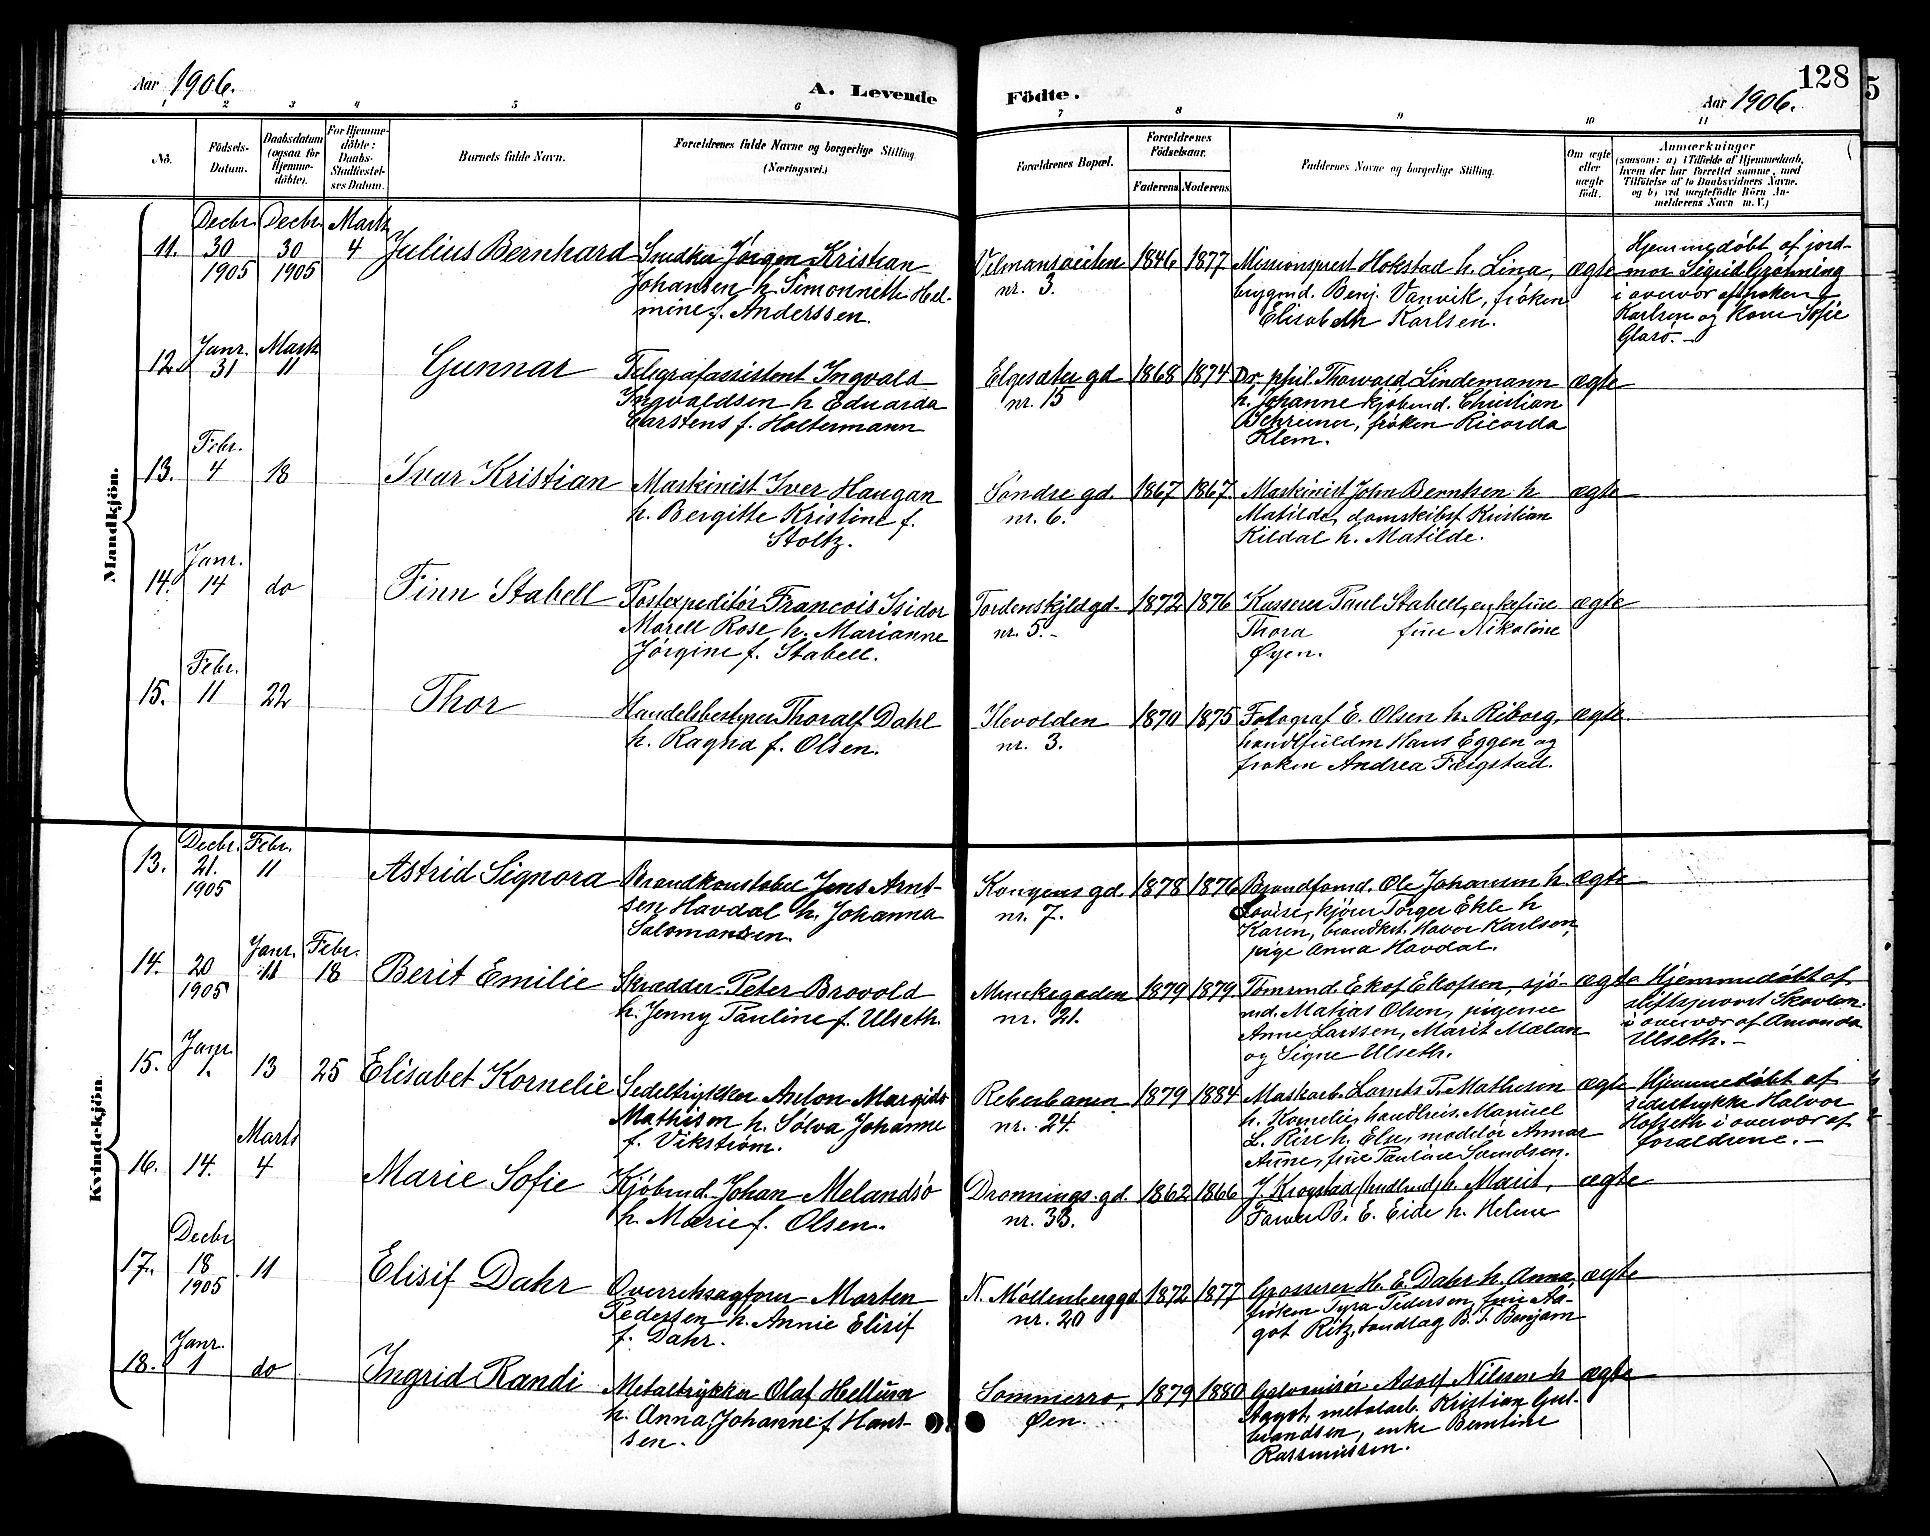 Aar 1906.
A. Levende
Födte.
128
Aar 1906.
5
1 2 3 4 5 6 7 8 9 10 11
Nô.
Födsels-
Datum.
Daabsdatum
(ogsaa for
Hjemme-
döbte).
For Hjemme-
döbte:
Daabs-
Stadfæstel-
ses Datum.
Barnets fulde Navn.
Forældrenes fulde Navne og borgerlige Stilling
(Næringsvei.)
Forældrenes Bopæl.
Forældrenes
Födselsaar.
Faderens.
Moderens.
Faddernes Navne og borgerlige Stilling.
Om ægte
eller
uægte
født.
Anmærkninger
(saasom: a) i Tilfælde af Hjemmedaab,
hvem der har forrettet samme, med
Tilföielse af to Daabsvidners Navne,
og b) ved uægtefödte Börn An-
melderens Navn m. V.)
Mandkjön.
11.
Decbr.
30
1905
Decbr.
30
1905
Marts
4
Julius Bernhard
Snedker Jørgen Kristian
Johansen h. Simonnette Hel-
mine f. Anderssen.
Vilmansveiten
nr. 3.
1846
1877
Missionsprest Hokstad h. Lina,
brygmd. Benj. Vanvik, frøken
Elisabeth Karlsen.
ægte
Hjemmedøbt af jord-
mor Sigrid Grønning
i overvær af frøken
Karlsen og kone Sofie
Glarø.
12.
Janr.
31
Marts
11
Gunnar
Telegrafassistent Ingvald
Ingvaldsen h Eduarda
Carstens f. Holtermann
Elgesæter gd
nr. 15
1868
1874
Dr. phil. Thorvald Lindemann
h. Johanne kjøbmd. Christian
Schreiner, frøken Ricorda
Klem.
ægte
13.
Febr.
4
18
Ivar Kristian
Maskinist Iver Haugan
h. Bergitte Kristine f.
Stoltz.
Søndre gd.
nr. 6.
1867
1867.
Maskinist John Berntsen h
Matilde, damskibsf Kristian
Kildal h. Matilde.
ægte
14.
Janr.
14
do
Finn Stabell
Postexpeditør Francois Isidor
Morell Rose h. Marianne
Jørgine f. Stabell.
Tordenskjoldgd.
nr. 5.
1872
1876
Kasserer Paul Stabell, enkefrue
Thora frue Nikoline
Øyen.
ægte
15.
Febr.
11
22
Thor
Handelsbestyrer Thoralf Dahl
h. Ragna f. Olsen.
Ilevolden
nr. 3.
1870
1875
Fotograf E. Olsen h. Riborg,
handlfuldm Hans Eggen og
frøken Andrea Færgstad.
ægte
Kvindekjön.
13.
Decbr.
21.
1905
Febr.
11
Astrid Signora
Brandkonstabel Jens Arnt-
sen Havdal h. Johanna
Salomonsen.
Kongens gd.
nr. 7.
1878
1876
Brandformd. Ole Johansen h.
Lovise, kjører Torger Ekle h
Karen, brandkst. Havor Karlson,
pige Anna Havdal.
ægte
14.
20
1905
Janr.
11
Febr.
18
Berit Emilie
Skrædder Peter Brovold
h. Jenny Pauline f. Ulseth.
Munkegaden
nr. 21.
1879
1879
Tømmd. Ekof Ekofsen, sjø-
md. Matias Olsen, pigerne
Anne Larssen, Marit Mælan
og Signe Ulseth.
ægte
Hjemmedøbt af
stiftsprovst Skavlan
i overvær af Amanda
Ulseth.
15.
Janr.
1.
13
25
Elisabet Kornelie
Sedeltrykker Anton Margido
Mathisen h. Sølva Johanne
f. Vikstrøm.
Reberbanen
nr. 24.
1879
1884
Maskarb. Laurits P. Mathisen
h. Kornelie, handlreis. Manuel
L. Rise h. Elu, modelør Annar
Aune, frue Pauline Samdsen.
ægte
Hjemmedøbt af
sedeltrykker Halvor
Hofseth i overvær af
forældrene.
16.
14.
Marts
4
Marie Sofie
Kjøbmd. Johan Melandsø
h. Marie f. Olsen.
Dronnings gd.
nr. 33.
1862
1866
J Krogstad (hndlmd) h. Marit,
Farver B. E. Eide h. Helene
ægte
17.
Decbr
18
1905
11
Elisif Dahr
Overretssagfører Morten
Pedersen h. Annie Elisif
f. Dahr.
N. Møllenberggd
nr. 20
1872
1877
Grosserer H. E. Dahr h. Anna,
frøken Tyra Pedersen, frue Aa-
got Ritz, tandlæg B. T. Benjam
ægte
18.
Janr.
1
do
Ingrid Randi
Metaltrykker Olaf Hellum
h. Anna Johanne f Hans-
sen.
Sommerro,
Øen.
1879
1880
Galvanisør Adolf Nilssen h
Agget, metalarb. Kristian Gul-
brandsen, enke Berntine
Rassmussen.
ægte